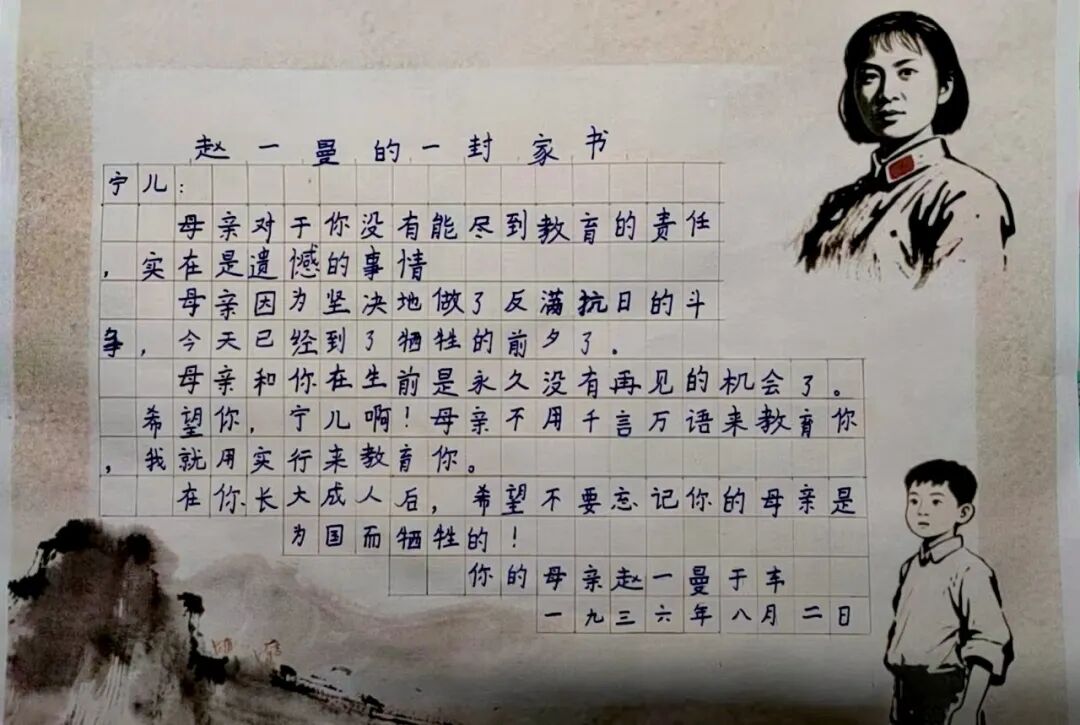 赵一曼的一封家书
宁儿：
母亲对于你没有能尽到教育的责任
，实在是遗憾的事情
母亲因为坚决地做了反满抗日的斗
争，今天已经到了牺牲的前夕了．
母亲和你在生前是永久没有再见的机会了。
希望你，宁儿啊！母亲不用千言万语来教育你
，我就用实行来教育你。
在你长大成人后，希望不要忘记你的母亲是
为国而牺牲的！
你的母亲赵一曼于车
一九三六年八月二日